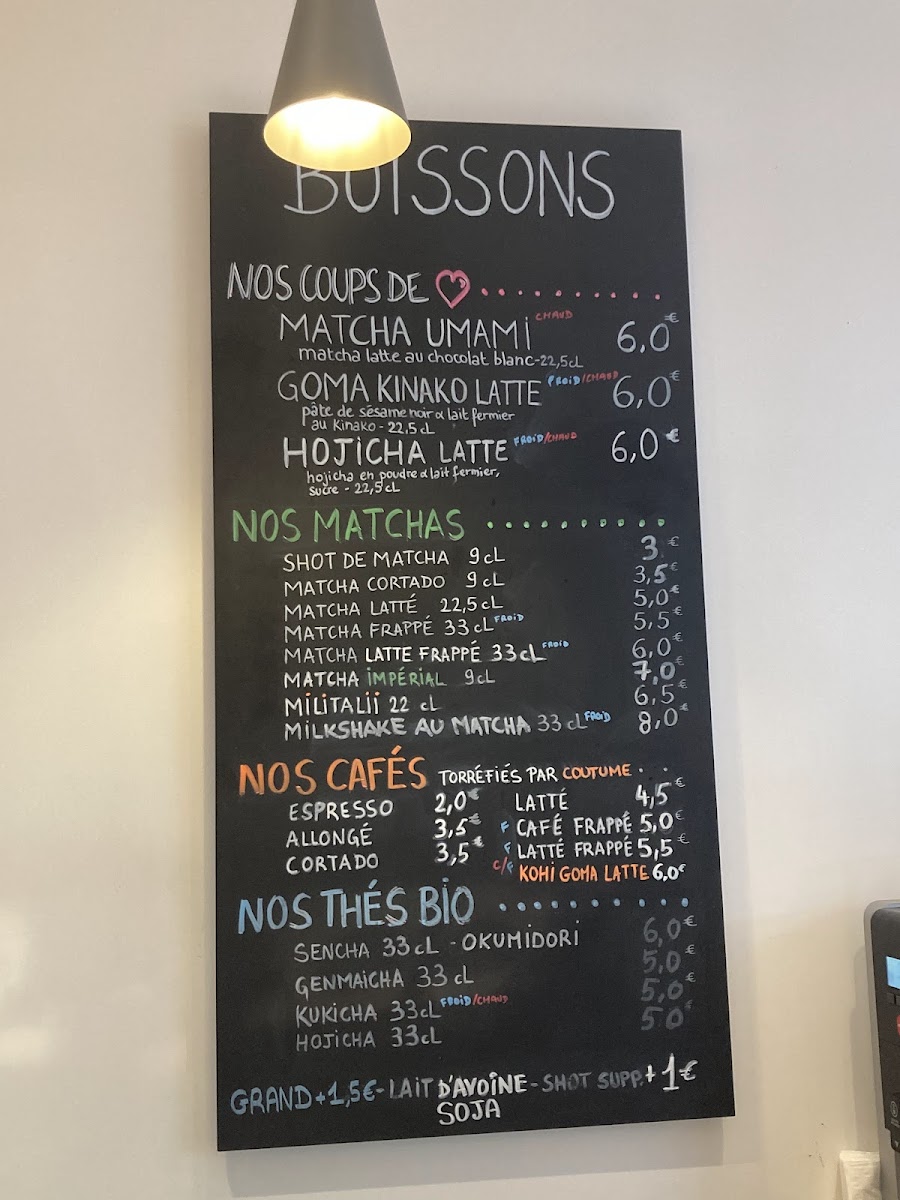 BOISSONS
NOS COUPS DE
MATCHA UMAMI CHAUD 6,0€
matcha latte au chocolat blanc-22,5cL
GOMA KINAKO LATTE FROID/CHAUD 6,0€
pâte de sésame noir & lait fermier
au Kinako - 22,5 cL
HOJICHA LATTE FROID/CHAUD 6,0€
hojicha en poudre & lait fermier,
sucre - 22,5 cL
NOS MATCHAS
SHOT DE MATCHA 9cL 3€
MATCHA CORTADO 9cL 3,5€
MATCHA LATTÉ 22,5cL 5,0€
MATCHA FRAPPÉ 33cL FROID 5,5€
MATCHA LATTE FRAPPÉ 33cL FROID 6,0€
MATCHA IMPÉRIAL 9cL 7,0€
MILITALII 22 cL 6,5€
MILKSHAKE AU MATCHA 33cL FROID 8,0€
NOS CAFÉS TORRÉFIÉS PAR COUTUME
ESPRESSO 2,0€ LATTÉ 4,5€
ALLONGÉ 3,5€ F CAFÉ FRAPPÉ 5,0€
CORTADO 3,5€ F LATTÉ FRAPPÉ 5,5€
C/F KOHI GOMA LATTE 6,0€
NOS THÉS BIO
SENCHA 33cL - OKUMIDORI 6,0€
GENMAICHA 33cL 5,0€
KUKICHA 33cL FROID/CHAUD 5,0€
HOJICHA 33cL 5,0€
GRAND+1,5€-LAIT D'AVOINE-SHOT SUPP.+1€
SOJA